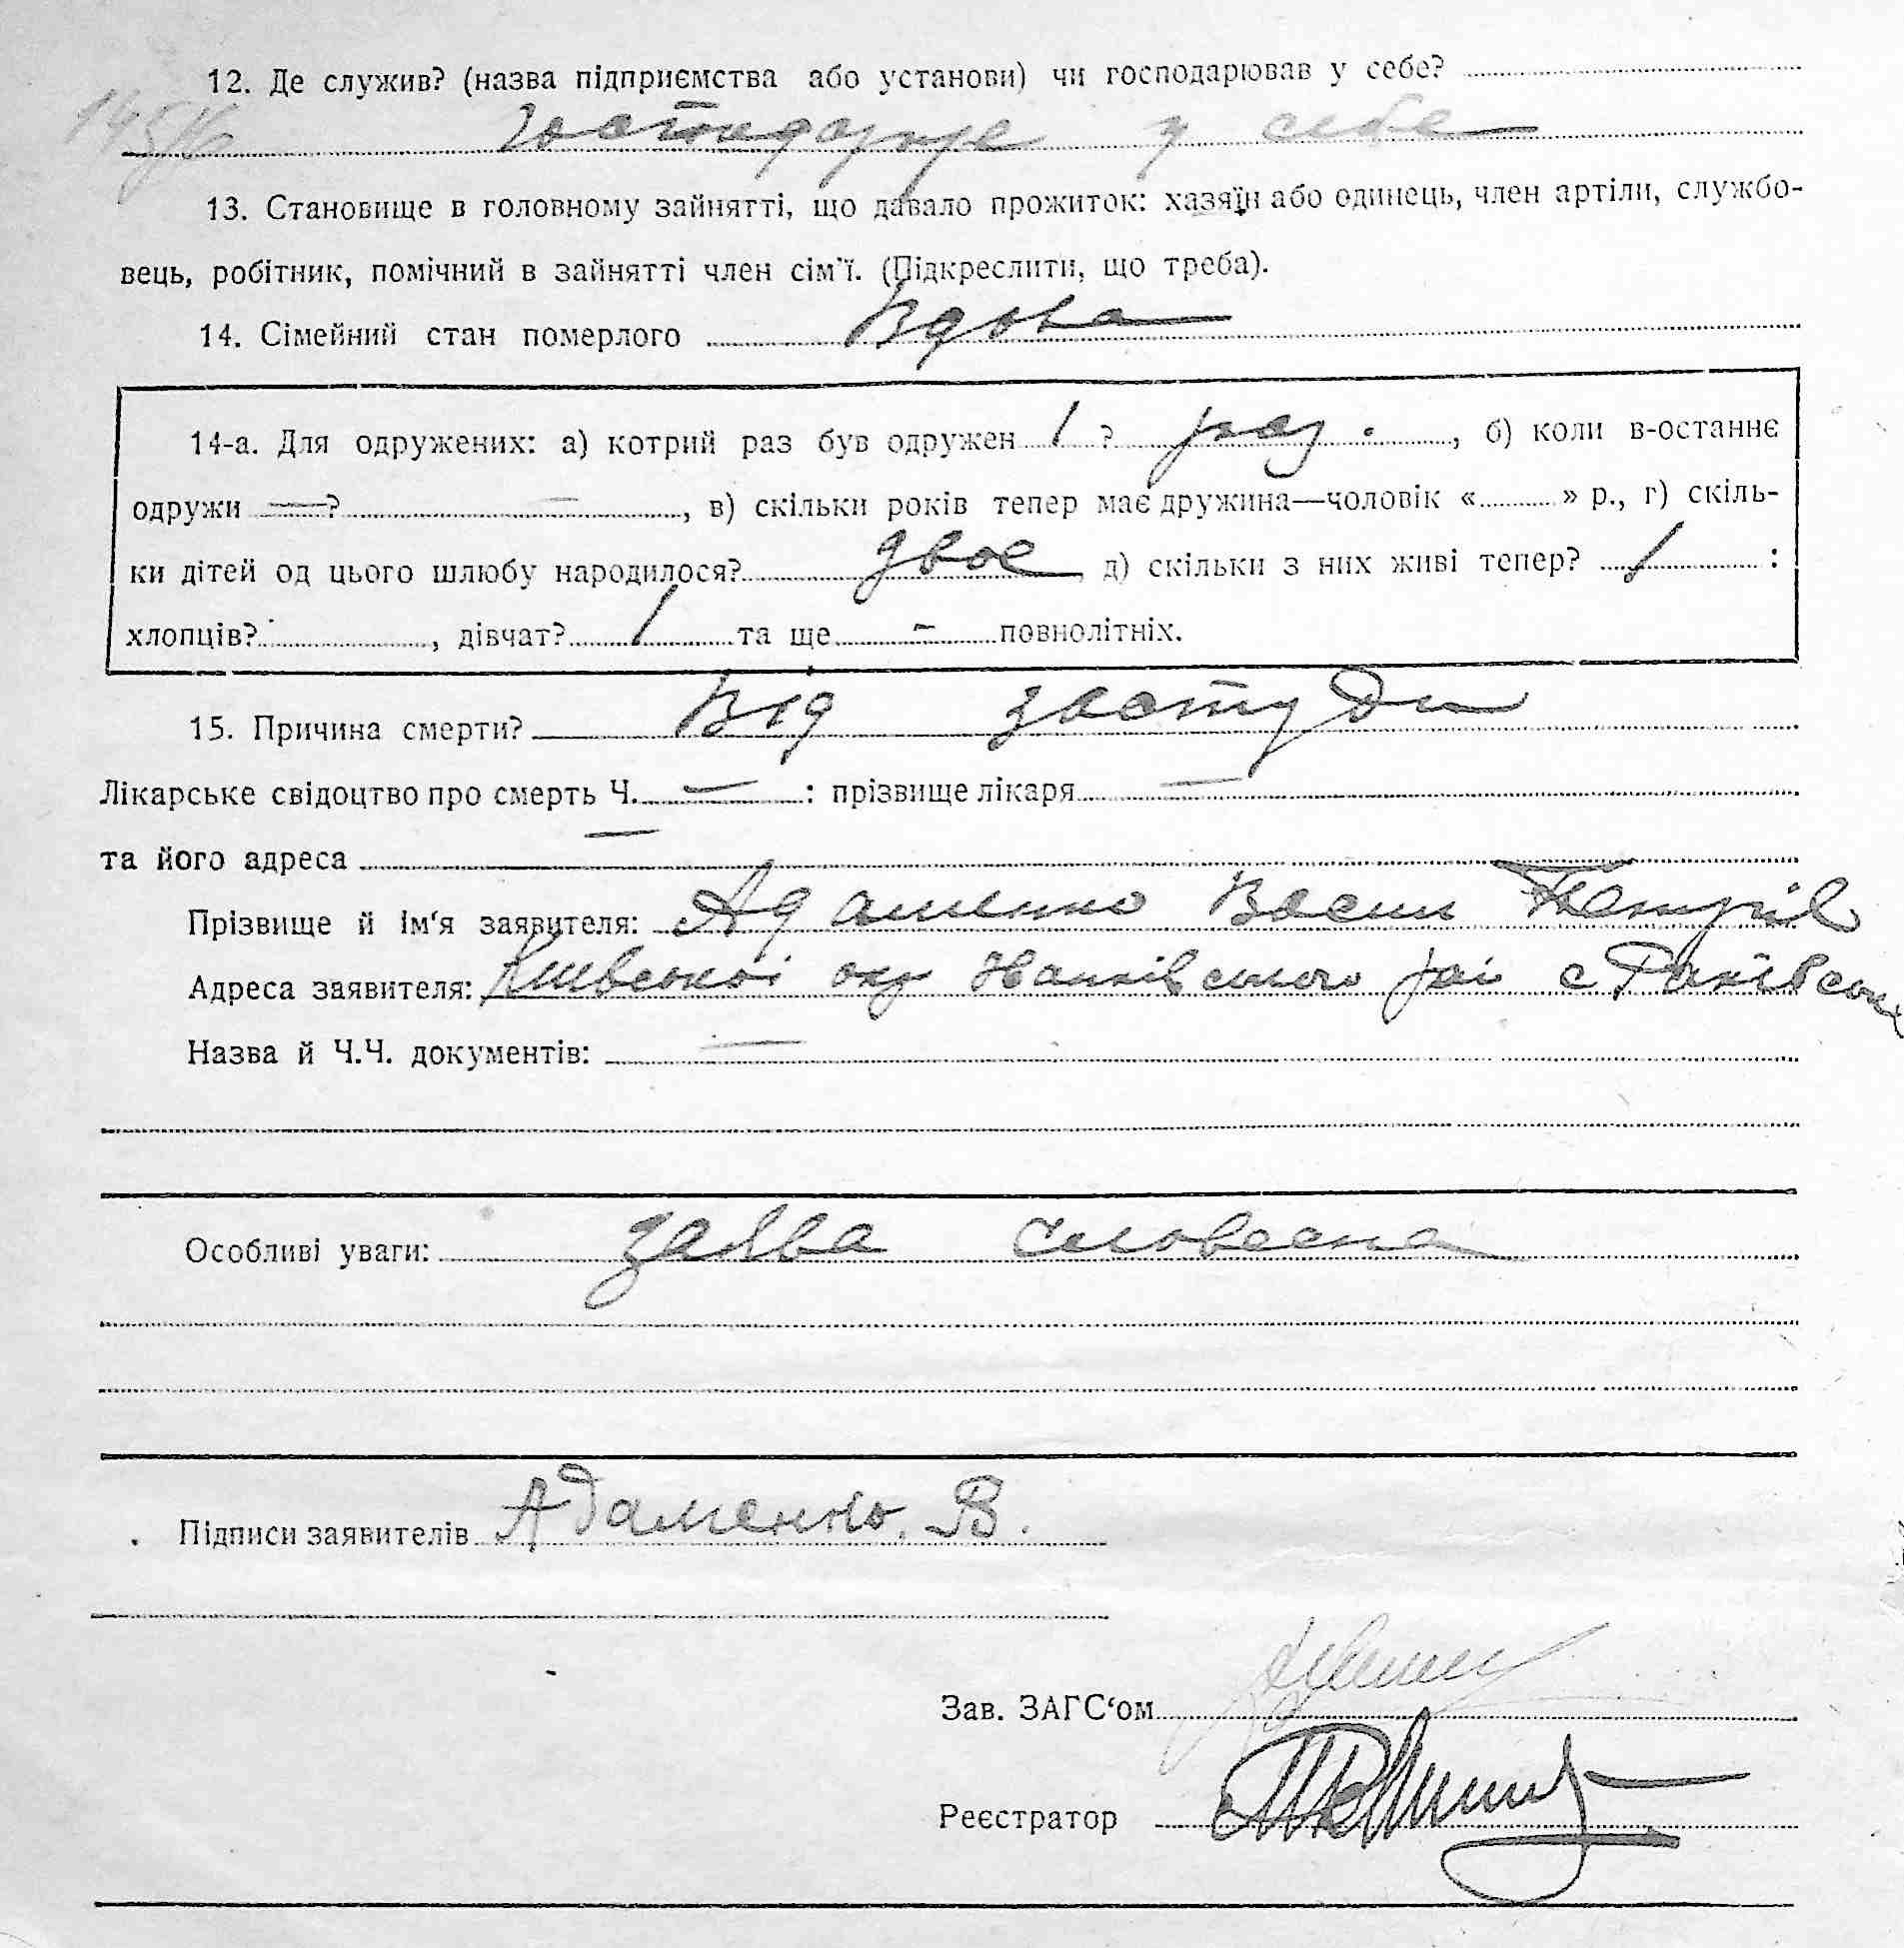 12. Де служив? (назва підприємства або установи) чи господарював у себе?
господарює у себе
13. Становище в головному зайнятті, що давало прожиток: хазяїн або одинець, член артіли, службо-
вець, робітник, помічний в зайнятті член сім'ї. (Підкреслити, що треба).
14. Сімейний стан померлого Вдова
14-а. Для одружених: а) котрий раз був одружен 1 ? раз. , б) коли в-останнє
одружи —? — , в) скільки років тепер має дружина—чоловік « » р., г) скіль-
ки дітей од цього шлюбу народилося? двоє , д) скільки з них живі тепер? 1 :
хлопців? , дівчат? 1 та ще - повнолітніх.
15. Причина смерти? Від застуди
Лікарське свідоцтво про смерть Ч. — : прізвище лікаря —
та його адреса —
Прізвище й ім'я заявителя: Адаменко Васил Петрів
Адреса заявителя: Київської окр району с
Назва й Ч.Ч. документів: —
Особливі уваги: заява словесна
Підписи заявителів Адаменко. В.
Зав. ЗАГС'ом
Реєстратор